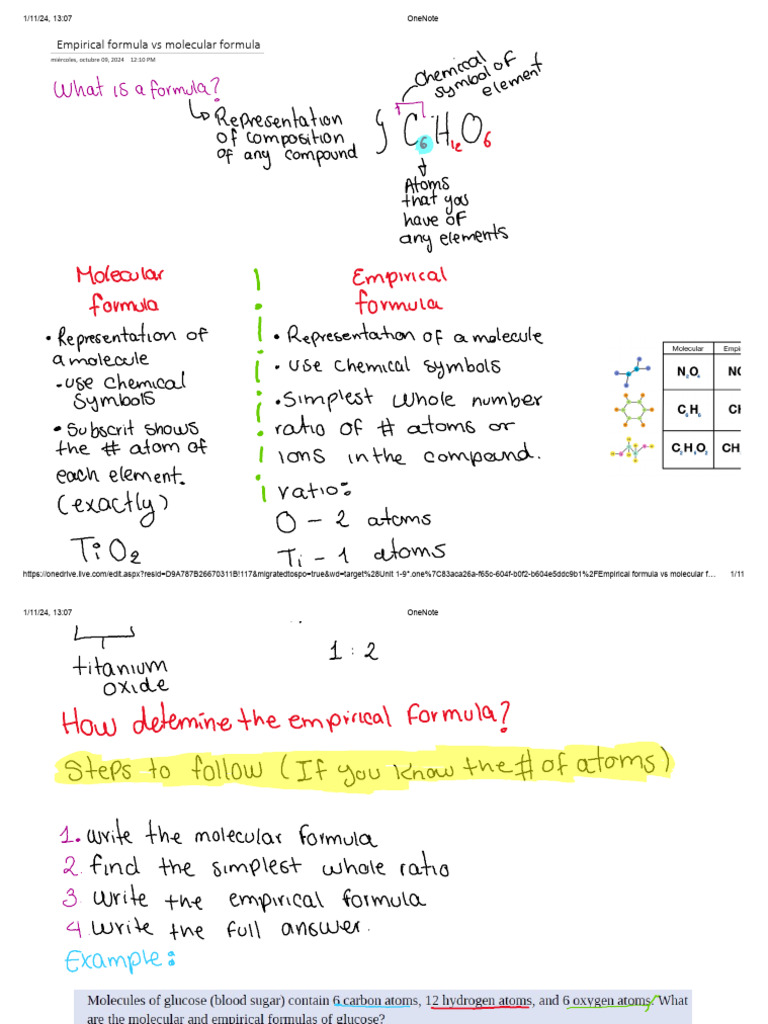 1/11/24, 13:07 OneNote
Empirical formula vs molecular formula
miércoles, octubre 09, 2024 12:10 PM
What is a formula?
Representation
of composition
of any compound
Chemiccal
symbol of
element
C6H12O6
Atoms
that you
have of
any elements
Molecular
formula
• Representation of
a molecule
- use chemical
symbols
• Subscrit shows
the # atom of
each element.
(exactly)
TiO2
Empirical
formula
• Representation of a molecule
• use chemical symbols
• Simplest whole number
ratio of # atoms or
ions in the compand.
ratio:
O - 2 atoms
Ti - 1 atoms
Molecular Empi
N2O4 NO
C6H6 CH
CH
https://onedrive.live.com/edit.aspx?resid=D9A787B26670311B!117&migratedtospo=true&wd=target%28Unit 1-9*.one%7C83aca26a-f65c-604f-b0f2-b604e5ddc9b1%2FEmpirical formula vs molecular f… 1/11
1/11/24, 13:07 OneNote
titanium
oxide
1 : 2
How detemine the empirical formula?
Steps to follow (If you know the # of atoms)
1. write the molecular formula
2. find the simplest whole ratio
3 write the empirical formula
4 write the full answer.
Example:
Molecules of glucose (blood sugar) contain 6 carbon atoms, 12 hydrogen atoms, and 6 oxygen atoms. What
are the molecular and empirical formulas of glucose?